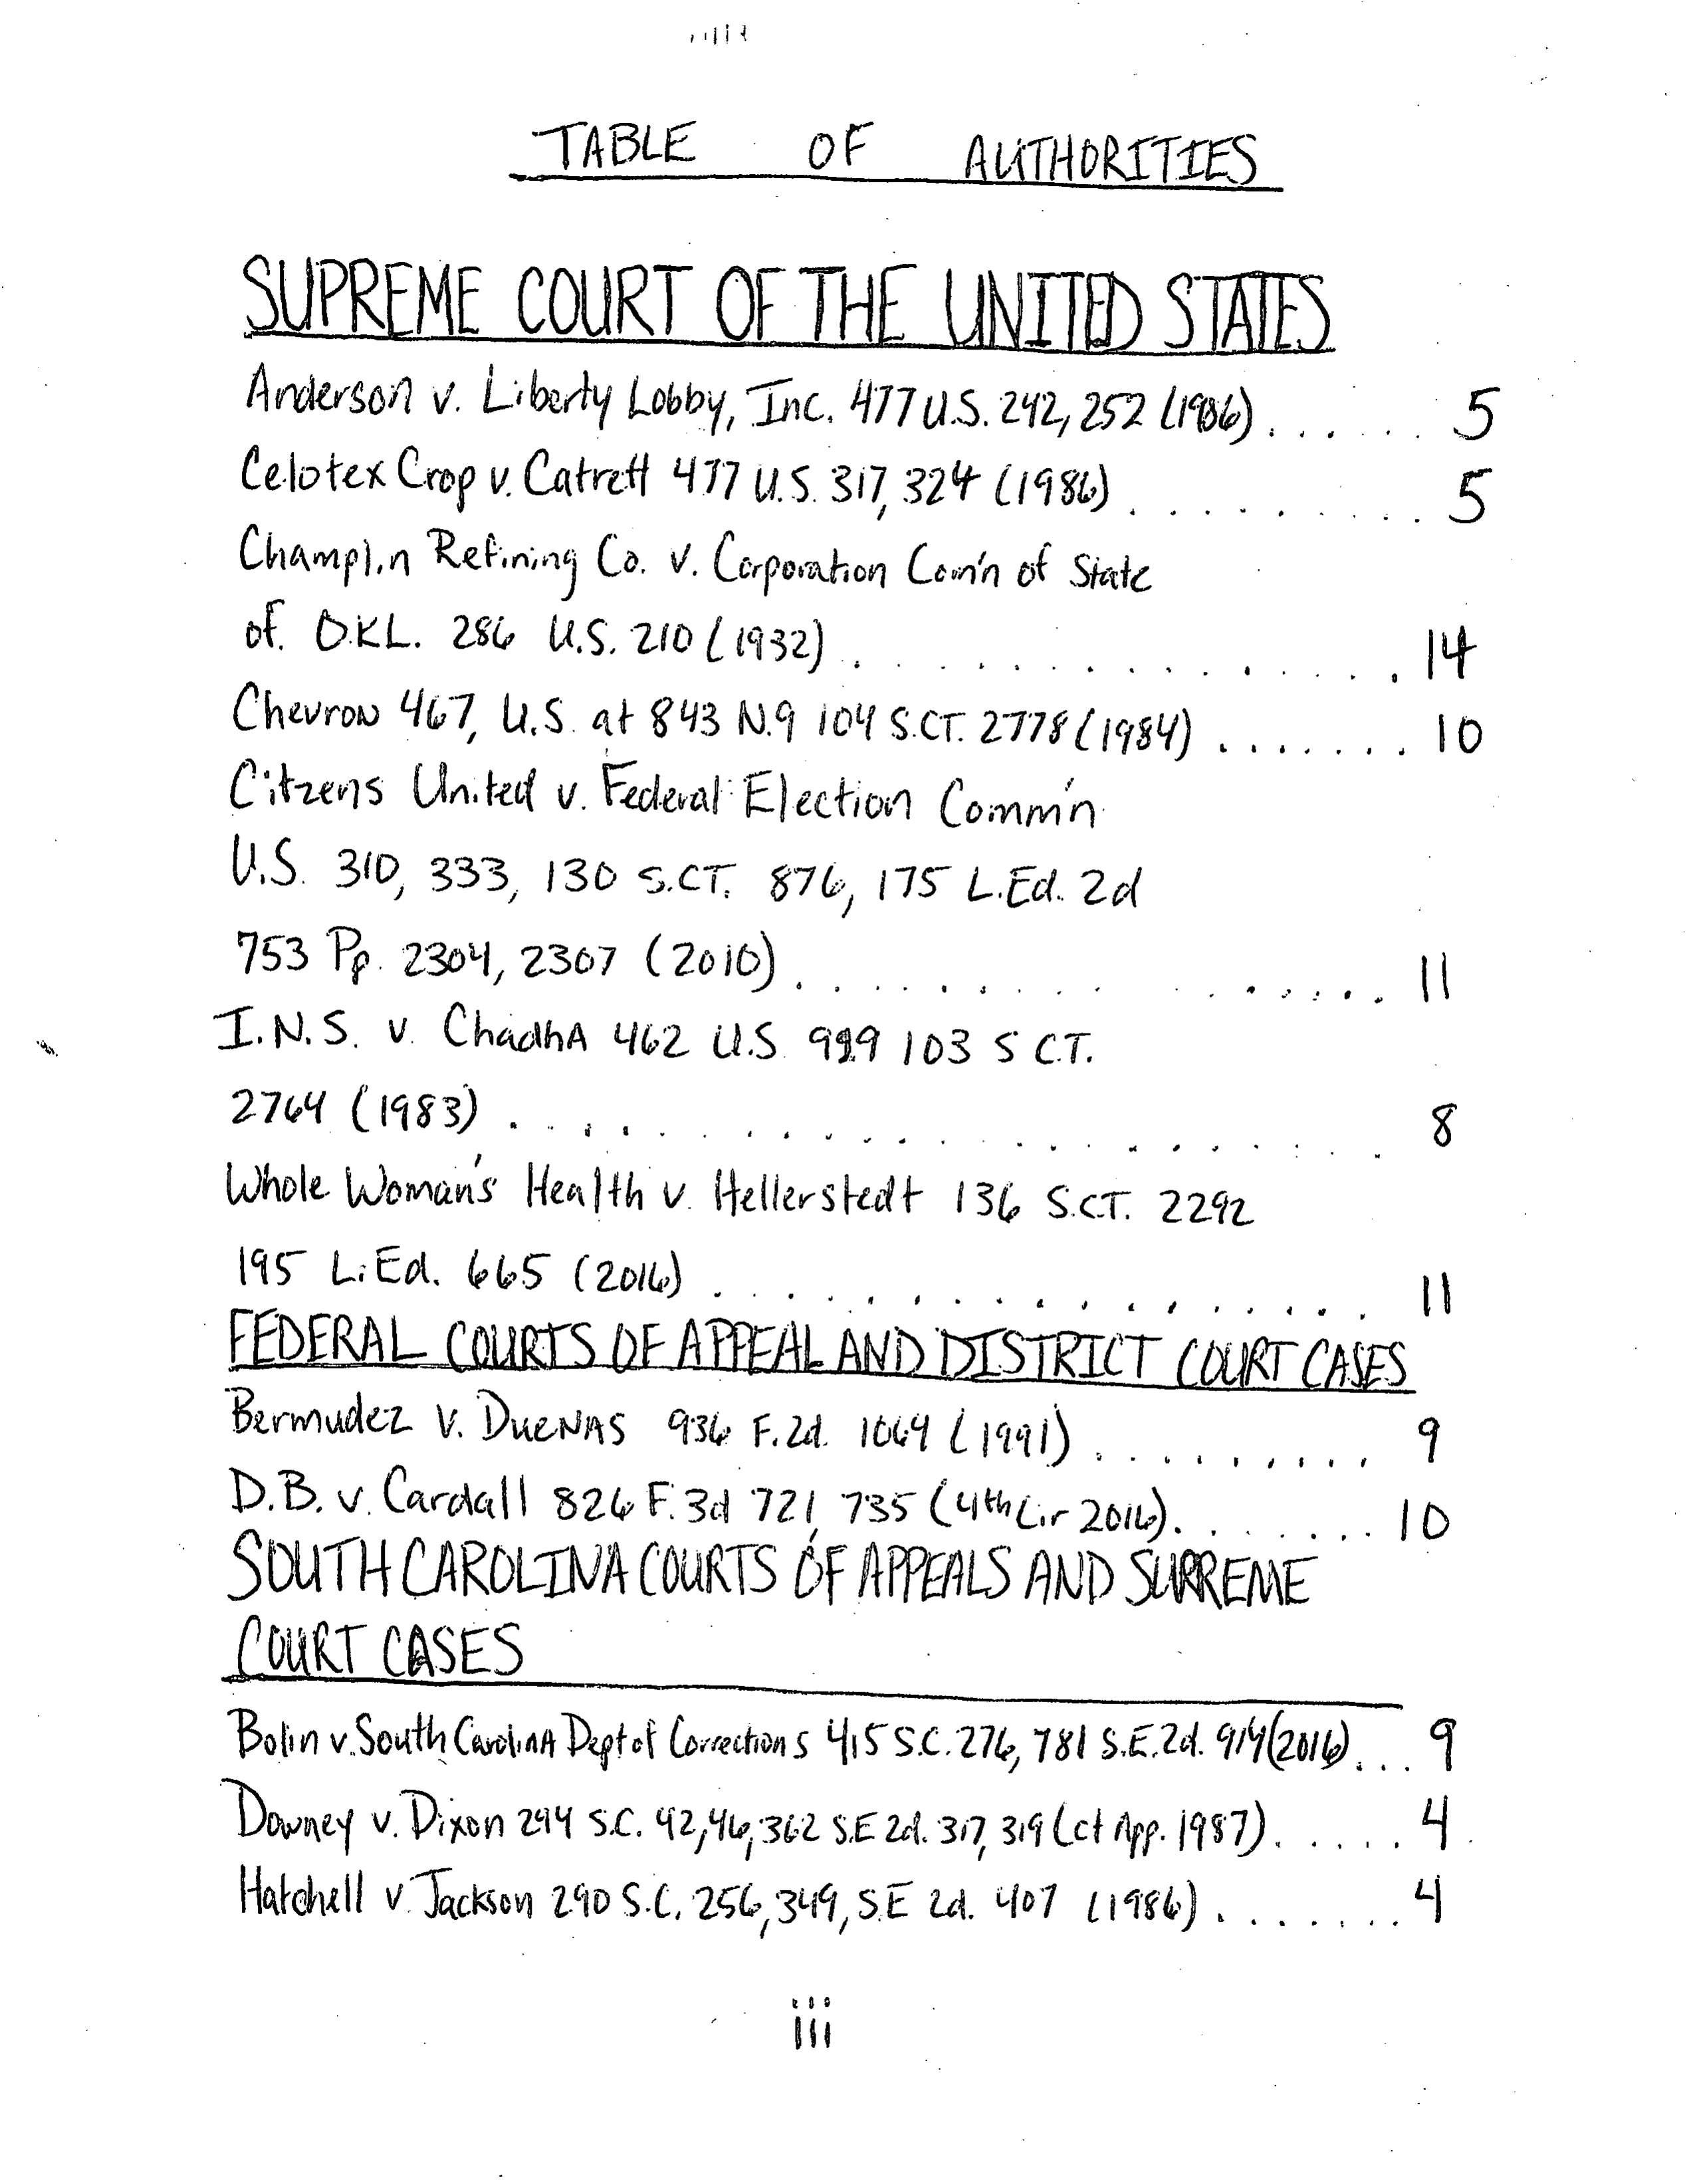 TABLE OF AUTHORITIES
SUPREME COURT OF THE UNITED STATES
Anderson v. Liberty Lobby, Inc. 477 U.S. 242, 252 (1986) . . . . . . . 5
Celotex Crop v. Catrett 477 U.S. 317, 324 (1986) . . . . . . . . . 5
Champlin Refining Co. v. Corporation Com'n of State
of. OKL. 286 U.S. 210 (1932) . . . . . . . . . . . . . . 14
Chevron 467, U.S. at 843 N.9 104 S.CT. 2778 (1984) . . . . . . . 10
Citzens United v. Federal Election Comm'n
U.S. 310, 333, 130 S.CT. 876, 175 L.Ed. 2d
753 Pp. 2304, 2307 (2010) . . . . . . . . . . . . . . 11
I.N.S. v. ChadhA 462 U.S. 919 103 S C.T.
2764 (1983) . . . . . . . . . . . . . . . . . . . . 8
Whole Woman's Health v. Hellerstedt 136 S.CT. 2292
195 L.Ed. 665 (2016) . . . . . . . . . . . . . . . . 11
FEDERAL COURTS OF APPEAL AND DISTRICT COURT CASES
Bermudez v. DueNAS 936 F.2d. 1064 (1991) . . . . . . . . . 9
D.B. v. Cardall 826 F.3d 721, 735 (4th Cir 2016). . . . . . . . 10
SOUTH CAROLINA COURTS OF APPEALS AND SUPREME
COURT CASES
Bolin v. South CarolinA Dept of Corrections 415 S.C. 276, 781 S.E.2d. 914 (2016) . . . 9
Downey v. Dixon 294 S.C. 42, 46, 362 S.E 2d. 317, 319 (ct App. 1987) . . . . . 4
Hatchell v. Jackson 290 S.C. 256, 349, S.E 2d. 407 (1986) . . . . . . . 4
iii